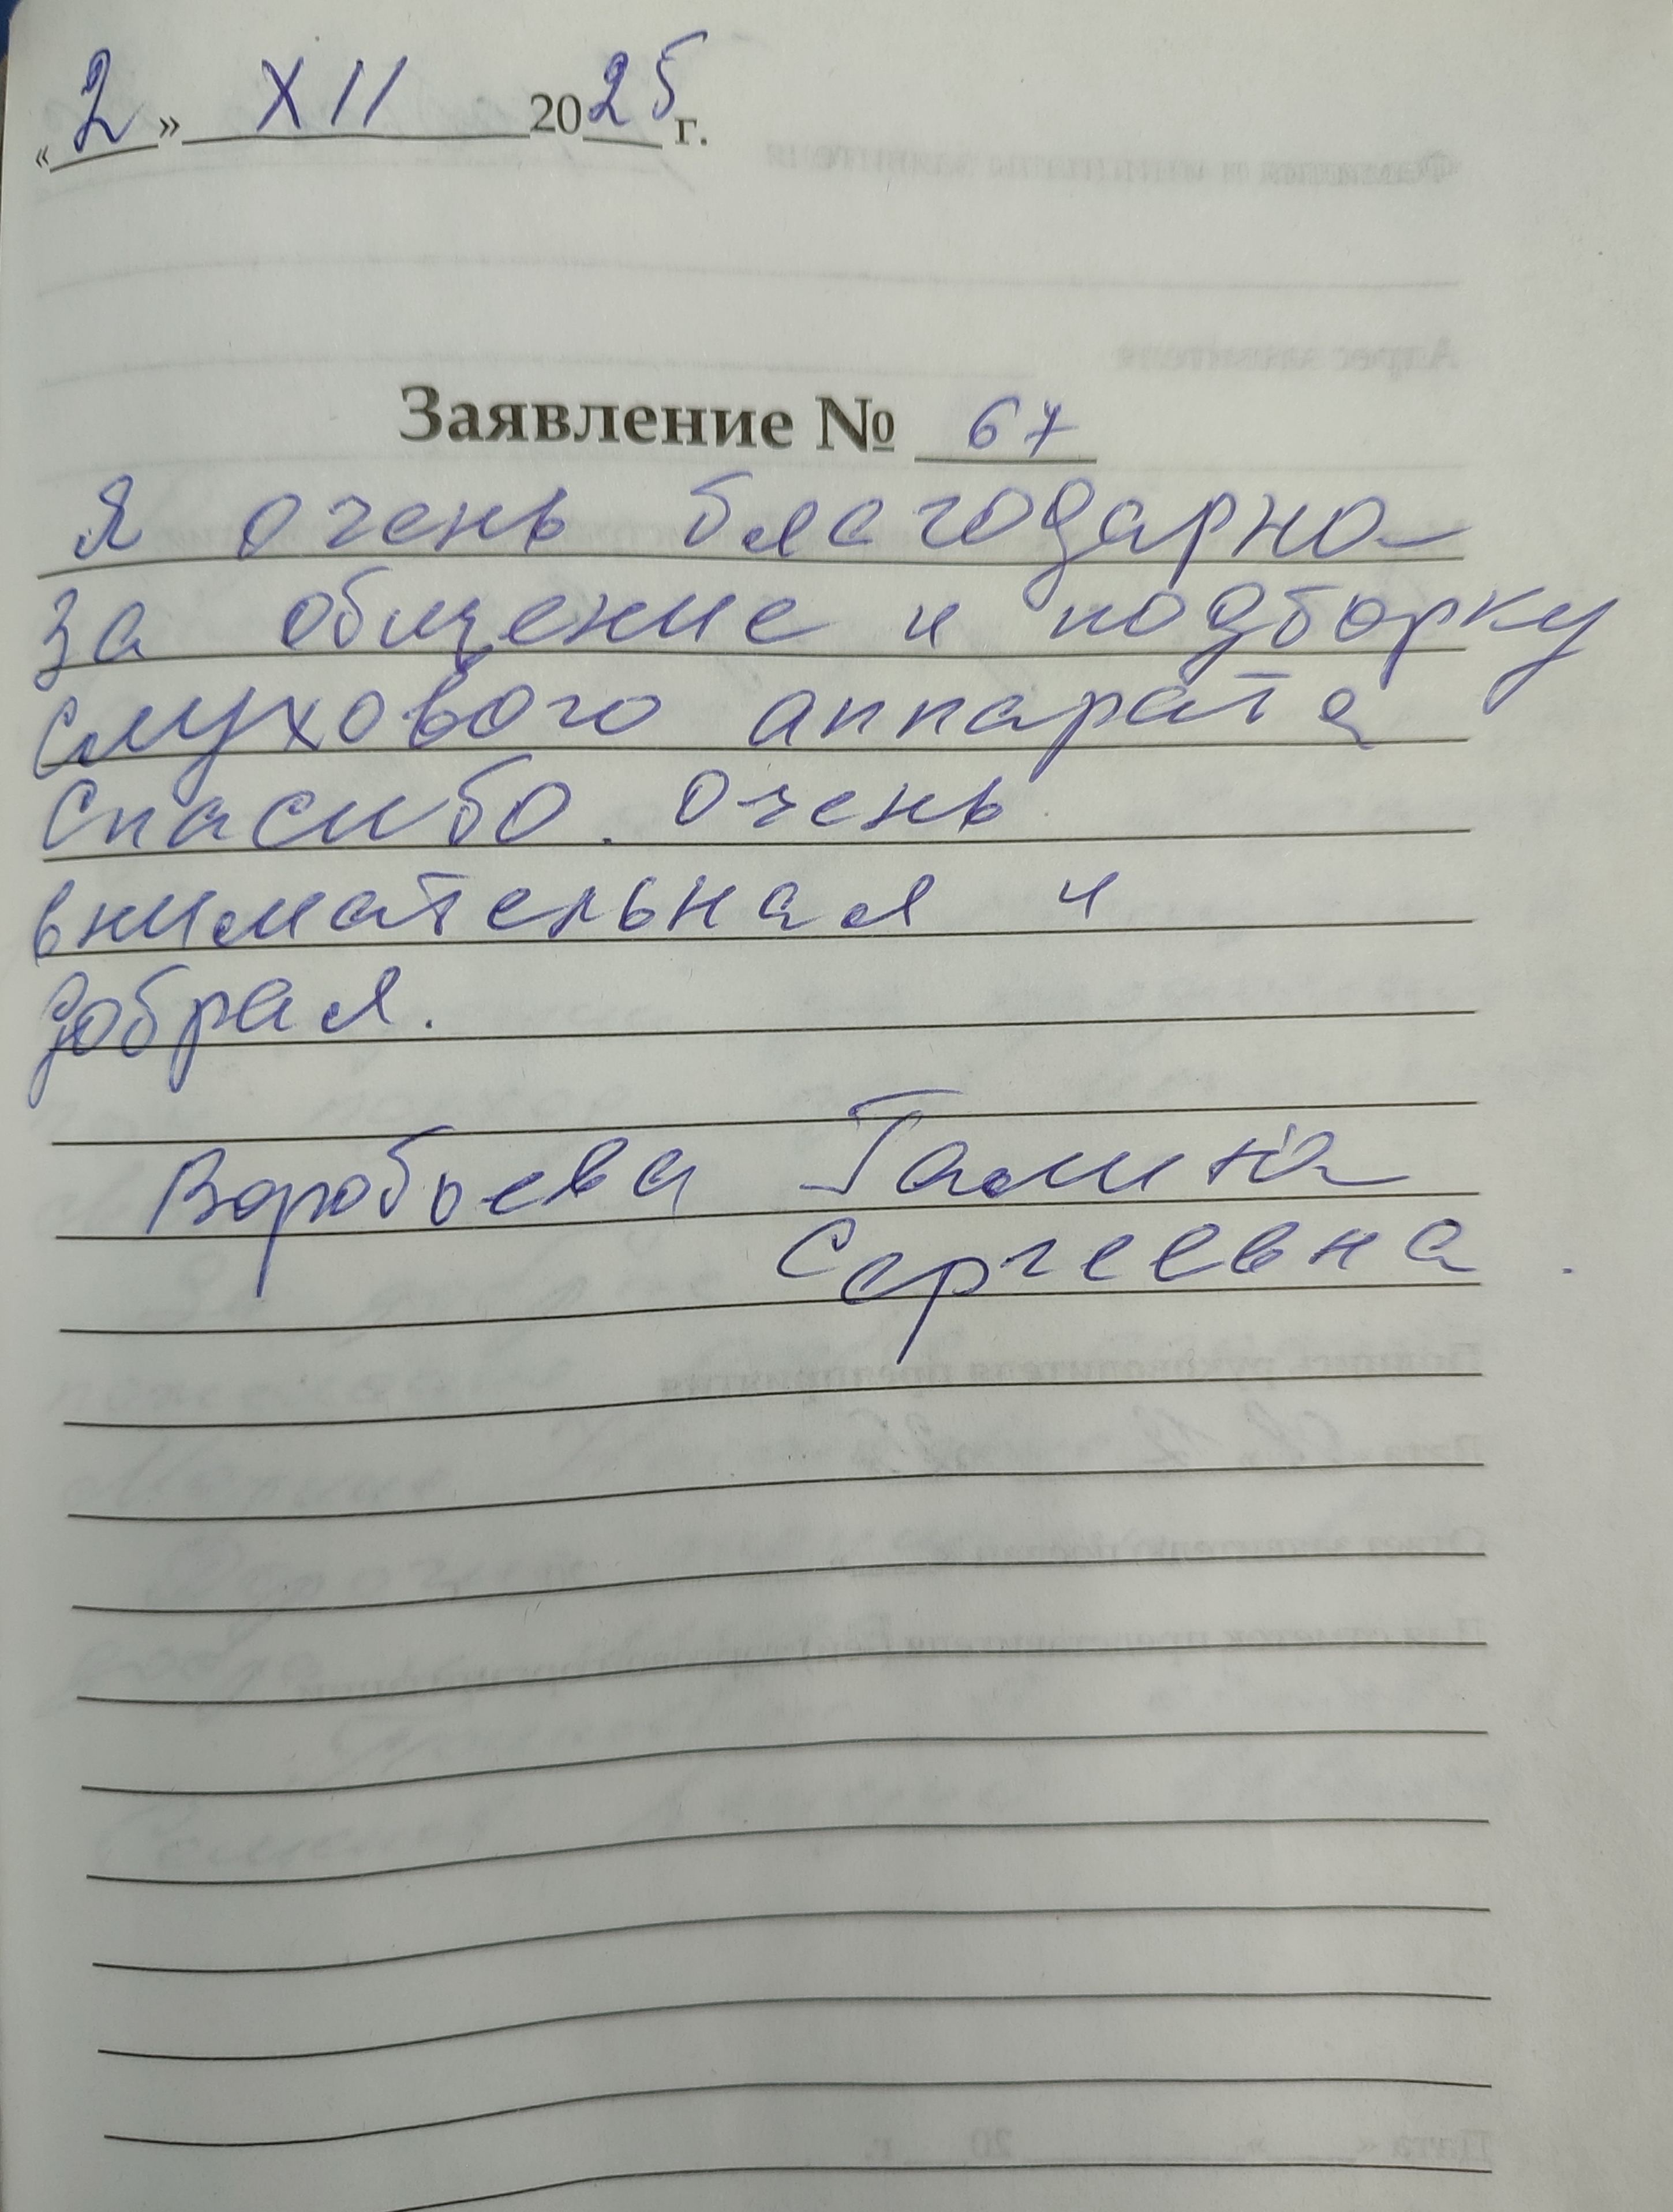 «2» XII 2025 г.
Заявление № 67
Я очень благодарна
за общение и подборку
слухового аппарата
Спасибо. Очень
внимательная и
добрая.
Воробьева Галина
Сергеевна.